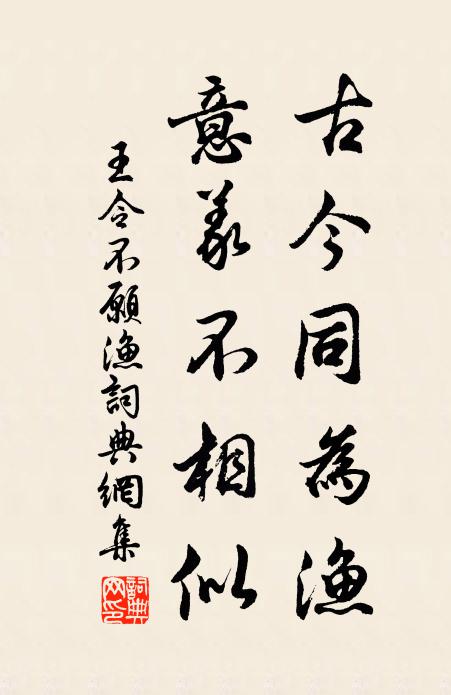 古今同為漁
意義不相似
王令不願漁詞典網集
詞典網印